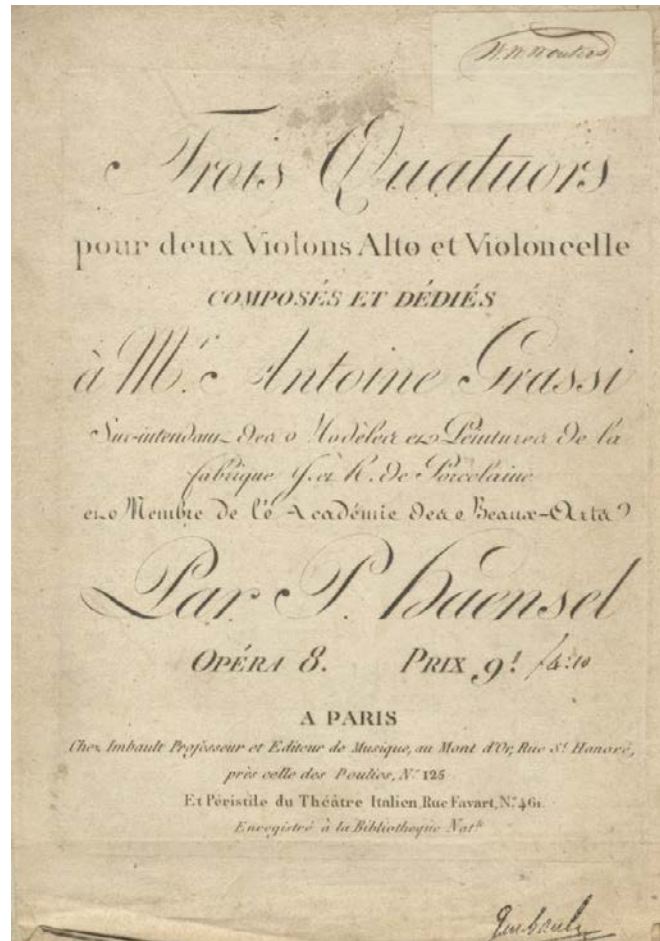 Trois Quatuors
pour deux Violons Alto et Violoncelle
COMPOSÉS ET DÉDIÉS
à Mr. Antoine Grassi
Sur-intendant des Modèles et Peintures de la
fabrique I. et R. de Porcelaine
et Membre de l'Académie des Beaux-Arts
Par P. Haensel
OPÉRA 8. PRIX 9!
A PARIS
Chez Imbault Professeur et Editeur de Musique, au Mont d'Or, Rue St. Honoré,
près celle des Poulies, No. 125
Et Péristile du Théâtre Italien, Rue Favart, No. 461.
Enregistré à la Bibliotheque Natle
Imbault